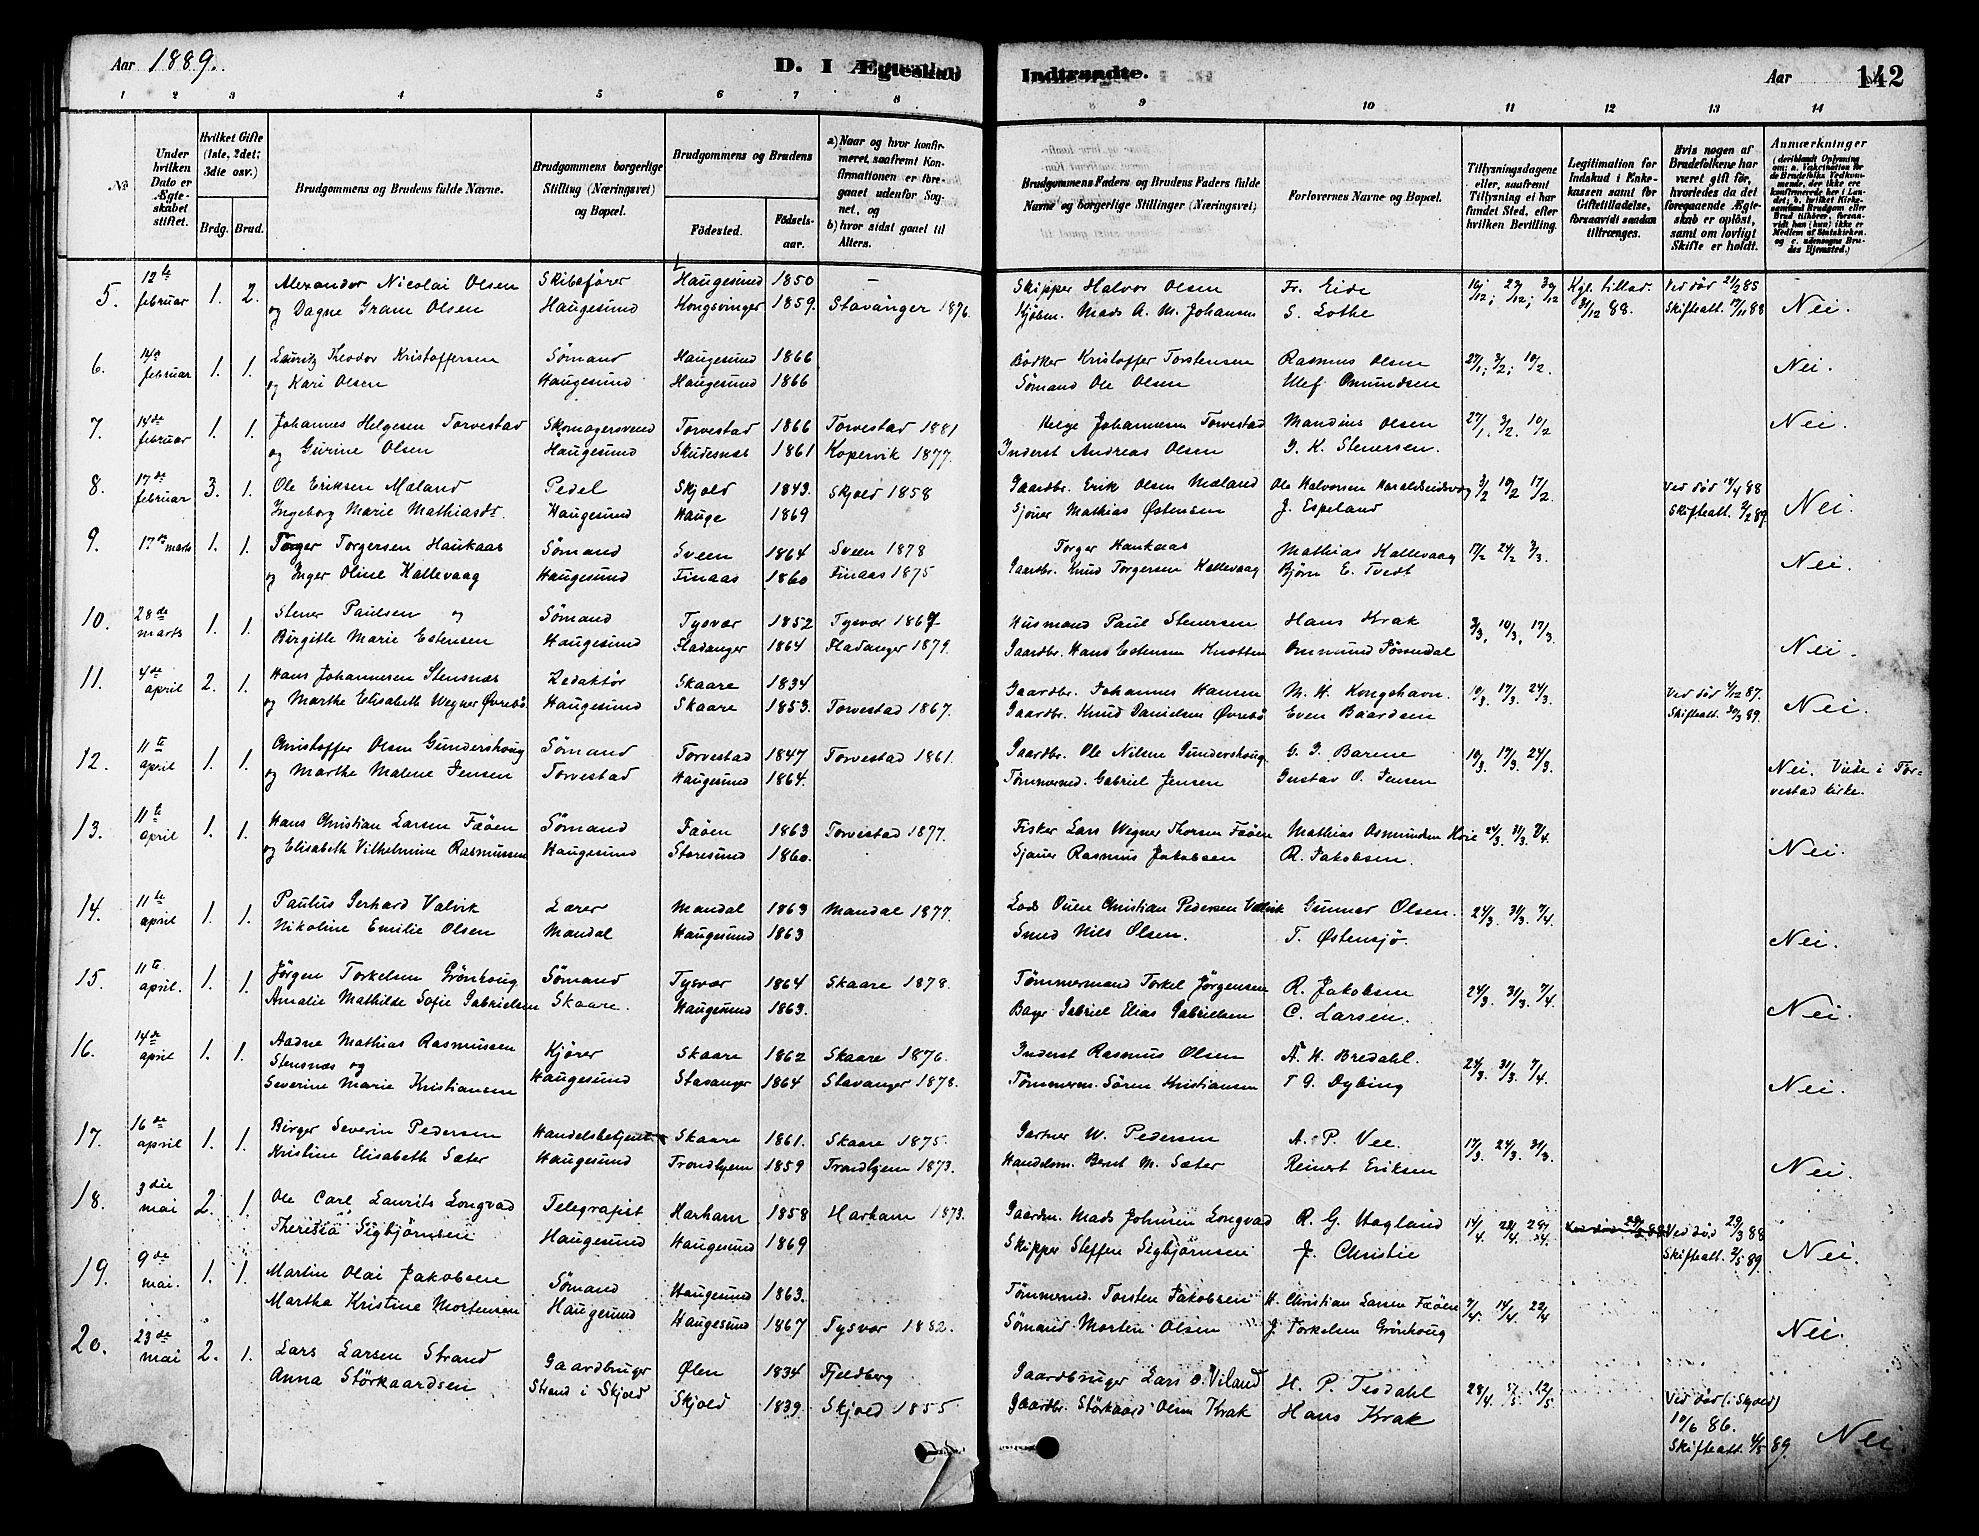 Aar 1889.
D. I Ægteskab Indtraadte.
Aar
142
1 2 3 4 5 6 7 8 9 10 11 12 13 14
No
Under hvilken Dato er Ægteskabet stiftet.
Hvilket Gifte (1ste, 2det; 3die osv.)
Brdg. Brud.
Brudgommens og Brudens fulde Navne.
Brudgommens borgerlige Stilling (Næringsvei) og Bopæl.
Brudgommens og Brudens
Födested. Födselsaar.
a) Naar og hvor konfirmeret, saafremt Konfirmationen er foregaaet udenfor Sognet, og
b) hvor sidst gaaet til Alters.
Brudgommens Faders og Brudens Faders fulde Navne og borgerlige Stillinger (Næringsvei)
Forlovernes Navne og Bopæl.
Tillysningsdagene eller, saafremt Tillysning ei har fundet Sted, efter hvilken Bevilling.
Legitimation for Indskud i Enkekassen samt for Giftetilladelse, forsaavidt saadan tiltrænges.
Hvis nogen af Brudefolkene har været gift før, hvorledes da det foregaaende Ægteskab er opløst, samt om lovligt Skifte er holdt.
Anmærkninger
5. 12te februar 1. 2. Alexander Nicolai Olsen Skibsfører Haugesund 1850 — Skipper Halvor Olsen Fr. Eide 16/12; 23/12; 30/12 Kgl. tillad. Ved død 21/2 85
og Dagne Gram Olsen Haugesund Kongsvinger 1859. Stavanger 1876. Kjøbm. Mads A. M. Johansen S. Lothe 31/12 88. Skifteatt. 17/11 88 Nei.
6. 14de februar 1. 1. Lauritz Theodor Kristoffersen Sømand Haugesund 1866 Bødker Kristoffer Torstensen Rasmus Olsen 27/1; 3/2; 10/2.
og Kari Olsen Haugesund Haugesund 1866 Sømand Ole Olsen Ulef. Omundsen Nei.
7. 14de februar 1. 1. Johannes Helgesen Torvestad Skomagersvend Torvestad 1866 Torvestad 1881 Helge Johannesen Torvestad Mandius Olsen 27/1. 3/2. 10/2 Nei.
og Gurine Olsen Haugesund Skudesnæs 1861 Kopervik 1877. Inderst Andreas Olsen I. K. Stenersen.
8. 17de februar 3. 1. Ole Eriksen Mæland Pedel Skjold 1843. Skjold 1858 Gaardbr. Erik Olsen Mæland Ole Halvorsen Haraldseidsvaag 3/2 10/2 17/2 Ved død 14/4 88
Ingeborg Marie Mathiasdr. Haugesund Hauge 1869 Sjouer Mathias Østensen J. Espeland Skifteatt. 2/2 89. Nei.
9. 17de marts 1. 1. Torger Torgersen Haukaas Sømand Sveen 1864 Sveen 1878 Torger Haukaas Mathias Kallevaag 17/2 24/2 3/3.
og Inger Oline Kallevaag Haugesund Finaas 1860 Finaas 1875 Gaardbr. Knud Torgersen Kallevaag Bjørn E. Tvedt Nei.
10. 28de marts 1. 1. Stener Paulsen og Sømand Tysvær 1852 Tysvær 1867 Husmand Paul Stenersen Hans Krak 3/3, 10/3, 17/3.
Birgitte Marie Estensen Haugesund Fladanger 1864 Fladanger 1879. Gaardbr. Hans Estensen Knotten Ommund Jøsendal Nei.
11. 4de april 2. 1. Hans Johannesen Stensnæs Redaktør Skaare 1834 Gaardbr. Johannes Hansen M. H. Kongshavn. 10/3. 17/3. 24/3. Ved død 4/12 87.
og Marthe Elisabeth Wegner Øvrebø. Haugesund Skaare 1853. Torvestad 1867. Gaardbr. Knud Danielsen Øvrebø Even Baardsen Skifteatt. 30/3 89. Nei.
12. 11te april 1. 1. Christoffer Olsen Gundershoug Sømand Torvestad 1847 Torvestad 1861. Gaardbr. Ole Nilsen Gundershoug G. I. Barene 10/3. 17/3. 24/3.
og Marthe Malene Jensen Torvestad Haugesund 1864. Tømmermd. Gabriel Jensen Gustav O. Jensen Nei. Viede i Torvestad kirke.
13. 11te april 1. 1. Hans Christian Larsen Fæøen Sømand Fæøen 1863 Torvestad 1877. Fisker Lars Wegner Thorsen Fæøen Mathias Osmundsen Hoie 24/3. 31/3. 7/4.
og Elisabeth Vilhelmine Rasmussen Haugesund Storesund 1860. Sjouer Rasmus Jakobsen R. Jakobsen. Nei.
14. 11te april 1. 1. Paulus Gerhard Valvik Lærer Mandal 1863 Mandal 1877. Lods Ouen Christian Pedersen Valvik Gunnar Olsen. 24/3. 31/3. 7/4.
Nikoline Emilie Olsen Mandal Haugesund 1863 Smed Nils Olsen. T. Østensjø. Nei.
15. 11te april. 1. 1. Jørgen Torkelsen Grönhoug Sømand Tysvær 1864 Skaare 1878. Tømmermand Torkel Jørgensen R. Jakobsen 24/3. 31/3. 7/4.
Amalie Mathilde Sofie Gabrielsen Skaare. Haugesund 1863. Bager Gabriel Elias Gabrielsen C. Larsen. Nei.
16. 14de april 1. 1. Aadne Mathias Rasmussen Kjører Skaare 1862 Skaare 1876. Inderst Rasmus Olsen A. H. Bredahl. 24/3. 31/3. 7/4.
Stensnæs og
Severine Marie Kristiansen Haugesund Stavanger 1864 Stavanger 1878. Tømmerm. Sören Kristiansen T. G. Dybing Nei.
17. 16de april 1. 1. Birger Severin Pedersen Handelsbetjent Skaare 1861. Skaare 1875. Gartner W. Pedersen A. P. Vee. 17/3. 24/3. 31/3.
Kristine Elisabeth Sæter Haugesund Trondhjem 1859 Trondhjem 1873. Handelsm. Bernt M. Sæter Reinert Eriksen Nei.
18. 3die mai 2. 1. Ole Carl Laurits Longvad Telegrafist Harham 1858 Harham 1873. Gaardm. Mads Johnsen Longvad R. G. Hagland 14/4. 22/4. 24/4. Ved død 29/3 88
Theresia Sigbjørnsen Haugesund Haugesund 1869 Skipper Steffen Sigbjørnsen J. Christie Skifteatt. 2/5 89. Nei.
19. 9de mai. 1. 1. Martin Olai Jakobsen Sømand Haugesund 1863. Tømmermd. Torsten Jakobsen H. Christian Larsen Fæøen 7/4. 14/4. 22/4
Martha Kristine Mortensen Haugesund Haugesund 1867 Tysvær 1882. Sømand Morten Olsen J. Torkelsen Grönhoug Nei.
20. 23de mai 2. 1. Lars Larsen Strand Gaardbruger Ølen 1834 Fjeldberg Gaardbruger Lars O. Viland H. P. Tesdahl 28/4. 5/5. 12/5 Ved død (i Skjold) 10/6 86.
Anna Störkaardsen Strand i Skjold Skjold 1839. Skjold 1855 Gaardbr. Störkaard Olsen Krak Hans Krak Skifteatt. 4/5 89. Nei.